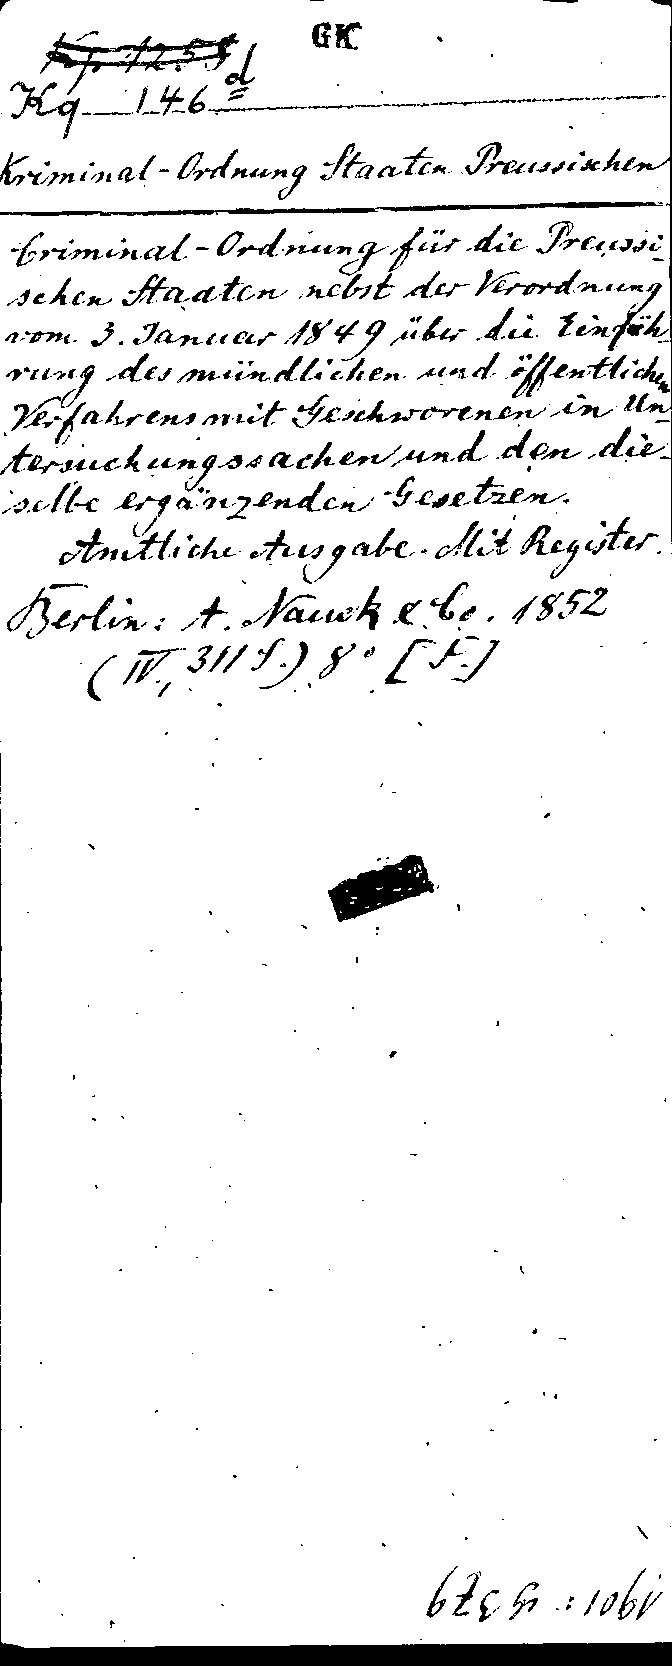 GK
Kq 146 d
Kriminal-Ordnung Staaten Preussischen
Criminal-Ordnung für die Preussi-
schen Staaten nebst der Verordnung
vom 3. Januar 1849 über die Einfüh-
rung des mündlichen und öffentlichen
Verfahrens mit Geschworenen in Un-
tersuchungssachen und den die-
selbe ergänzenden Gesetzen.
Amtliche Ausgabe. Mit Register.
Berlin: A. Nauck & Co. 1852
(IV, 311 S.) 8° [F.]
1901: